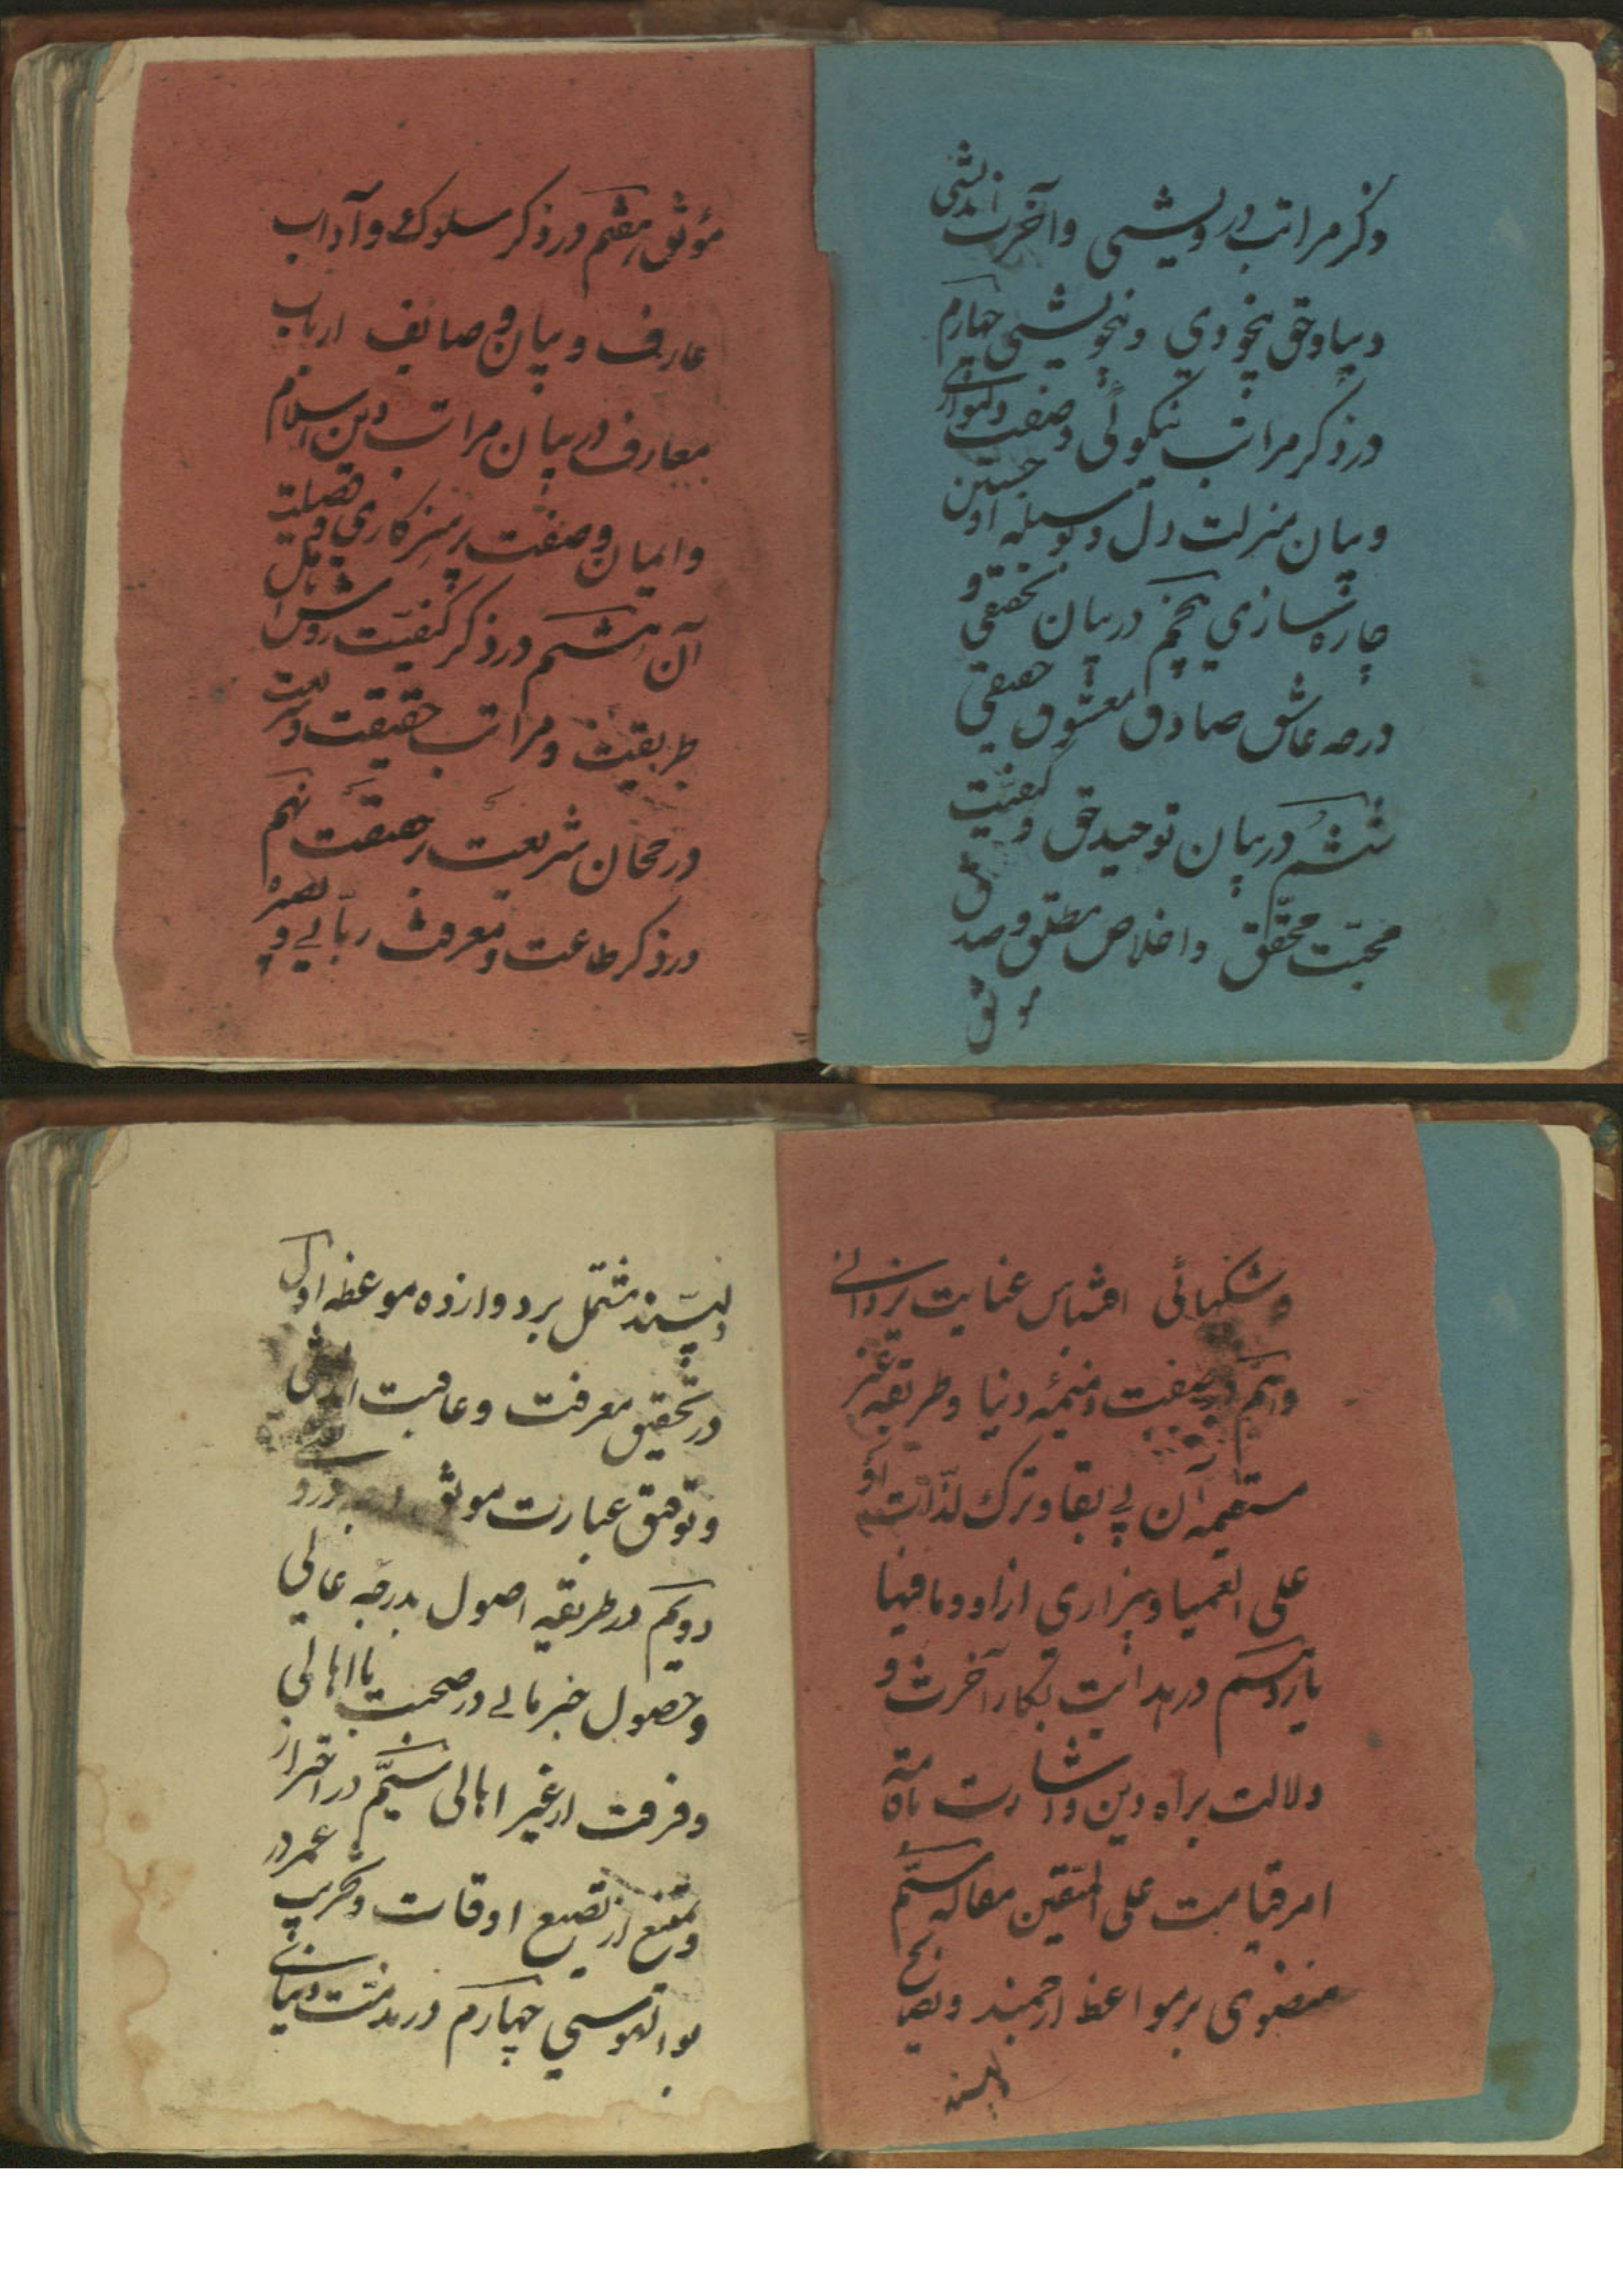 ذکر مراتب درویشی و آخرت اندیشی
و بیاد حق بیخودی و بیخویشی چهارم
در ذکر مراتب نیکوئی و صفت دلنوازی
و بیان منزلت دل و بوسیله او جستن
چاره سازی پنجم در بیان تحقیق و
درجه عاشق صادق معشوق حقیقی
ششم در بیان توحید حق و کیفیت
محبّت محقق و اخلاص مطلق و صدق
موثق
موثق هفتم در ذکر سلوک و آداب
عارف و بیان وصایف ارباب
معارف در بیان مراتب دین اسلام
و ایمان و صفت پرهیزکاری و فضلیت
آن هشتم در ذکر کیفیّت روش اهل
طریقت و مراتب حقیقت و شریعت
در رجحان شریعت بر حقیقت نهم
در ذکر طاعت و معرفت ربّانی و
و شکیبائی اقتباس عنایت یزدانی
دهم در صفت ذمیمهٔ دنیا و طریقه غیر
مستقیمه آن بی بقا و ترک لذّات او
علی العمیا و بیزاری از او و مافیها
یازدهم در هدایت بکار آخرت و
دلالت براه دین و اشارت تامّه
امر قیامت علی الیقین مقاله سیّم
منطوی بر مواعظ ارجمند و نصایح
دلپسند
دلپسند مشتمل بر دوازده موعظه اول
در تحقیق معرفت و عاقبت اندیشی
و توفیق عبارت موثق
دویم در طریقه اصول بدرجه عالی
و حصول خبر مالی در صحبت با اهالی
و فرقت از غیر اهالی سیّم در احتراز
و منع از تضیع اوقات و تخریب عمر در
بوالهوسی چهارم در مذمت دنیای